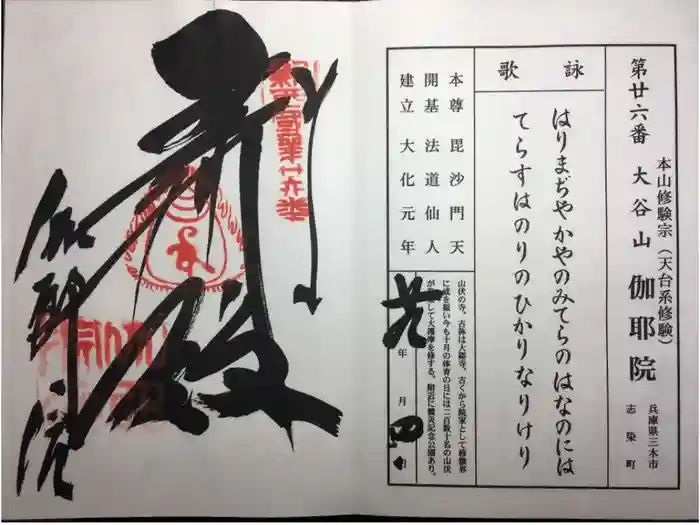 第廿六番 大谷山 伽耶院
本山修験宗(天台系修験)
兵庫県三木市
志染町
詠歌
はりまぢやかやのみてらの はなのには
てらすはのりのひかりなりけり
本尊 毘沙門天
開基 法道仙人
建立 大化元年
山伏の寺。古称は大谿寺。古くから
に
今も十月の体育の日には二百数十名の山伏
して大護摩を修する。附近に
記念公園あり。
年 月 日
伽耶院